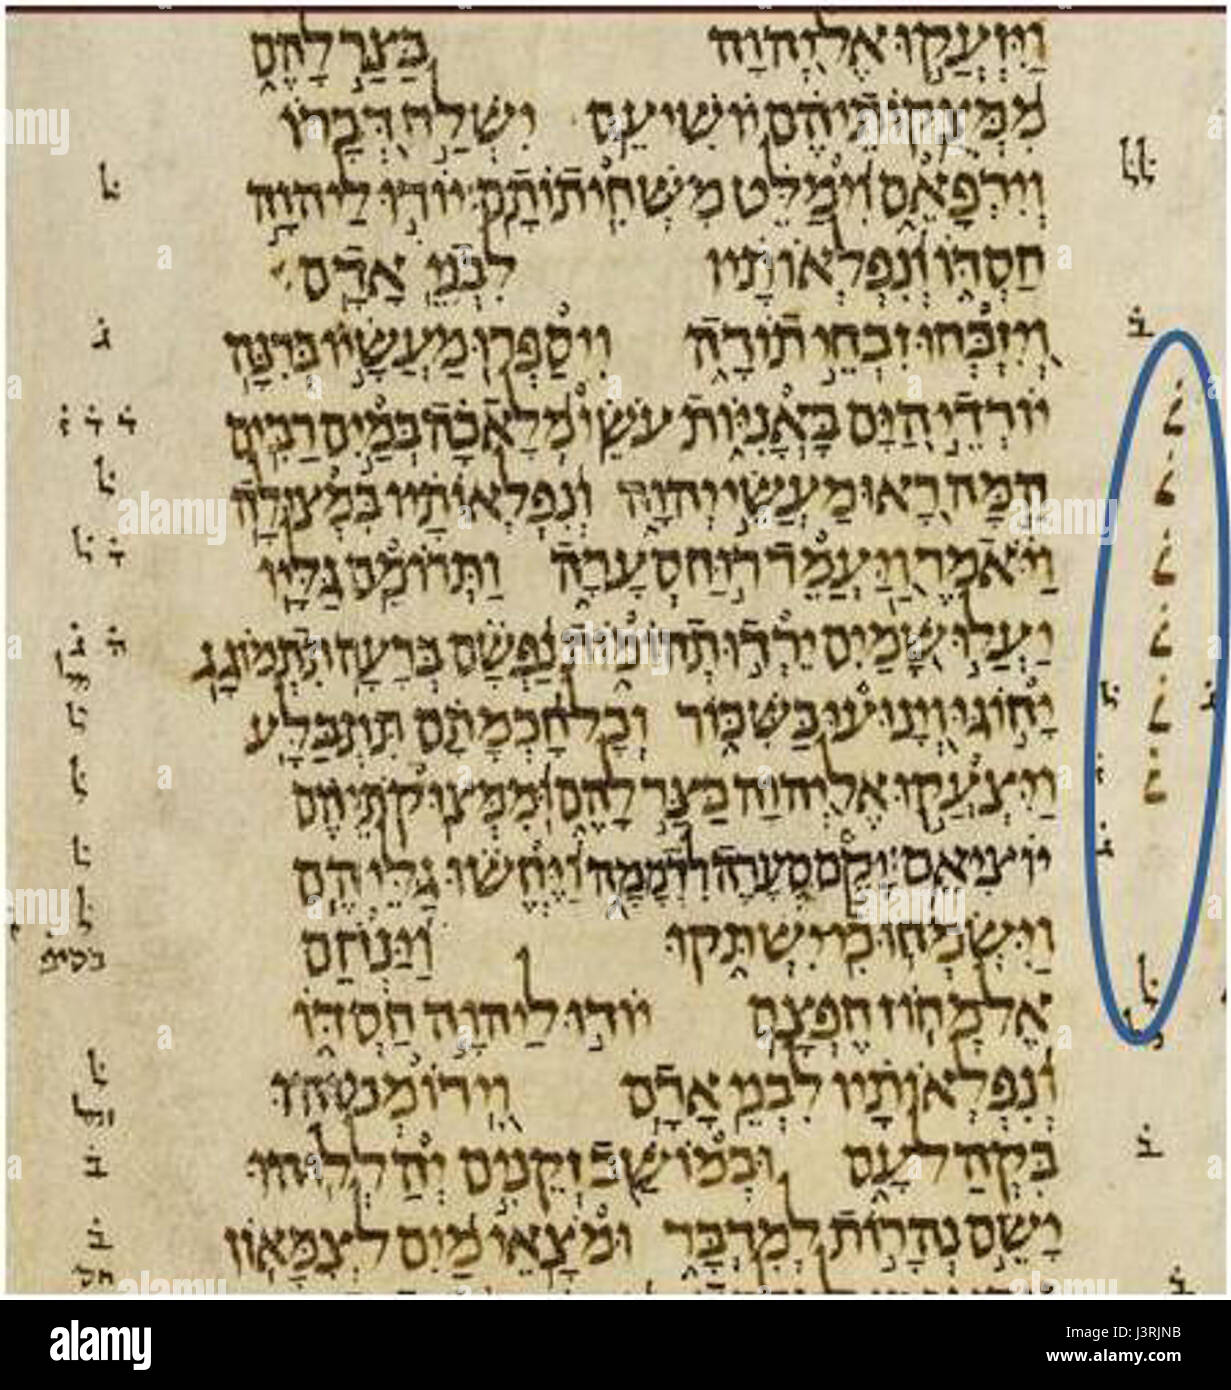 וַיִּזְעֲקוּ אֶל יְהוָה בַּצַּר לָהֶם
מִמְּצֻקוֹתֵיהֶם יוֹשִׁיעֵם יִשְׁלַח דְּבָרוֹ
וְיִרְפָּאֵם וִימַלֵּט מִשְּׁחִיתוֹתָם יוֹדוּ לַיהוָה
חַסְדּוֹ וְנִפְלְאוֹתָיו לִבְנֵי אָדָם
וְיִזְבְּחוּ זִבְחֵי תוֹדָה וִיסַפְּרוּ מַעֲשָׂיו בְּרִנָּה
׆ יוֹרְדֵי הַיָּם בָּאֳנִיּוֹת עֹשֵׂי מְלָאכָה בְּמַיִם רַבִּים
׆ הֵמָּה רָאוּ מַעֲשֵׂי יְהוָה וְנִפְלְאוֹתָיו בִּמְצוּלָה
׆ וַיֹּאמֶר וַיַּעֲמֵד רוּחַ סְעָרָה וַתְּרוֹמֵם גַּלָּיו
׆ יַעֲלוּ שָׁמַיִם יֵרְדוּ תְהוֹמוֹת נַפְשָׁם בְּרָעָה תִתְמוֹגָג
׆ יָחוֹגּוּ וְיָנוּעוּ כַּשִּׁכּוֹר וְכָל חָכְמָתָם תִּתְבַּלָּע
׆ וַיִּצְעֲקוּ אֶל יְהוָה בַּצַּר לָהֶם וּמִמְּצוּקֹתֵיהֶם
יוֹצִיאֵם יָקֵם סְעָרָה לִדְמָמָה וַיֶּחֱשׁוּ גַּלֵּיהֶם
וַיִּשְׂמְחוּ כִי יִשְׁתֹּקוּ וַיַּנְחֵם
אֶל מְחוֹז חֶפְצָם יוֹדוּ לַיהוָה חַסְדּוֹ
וְנִפְלְאוֹתָיו לִבְנֵי אָדָם וִירוֹמְמוּהוּ
בִּקְהַל עָם וּבְמוֹשַׁב זְקֵנִים יְהַלְלוּהוּ
יָשֵׂם נְהָרוֹת לְמִדְבָּר וּמֹצָאֵי מַיִם לְצִמָּאוֹן
alamy
Image ID: J3RJNB
www.alamy.com